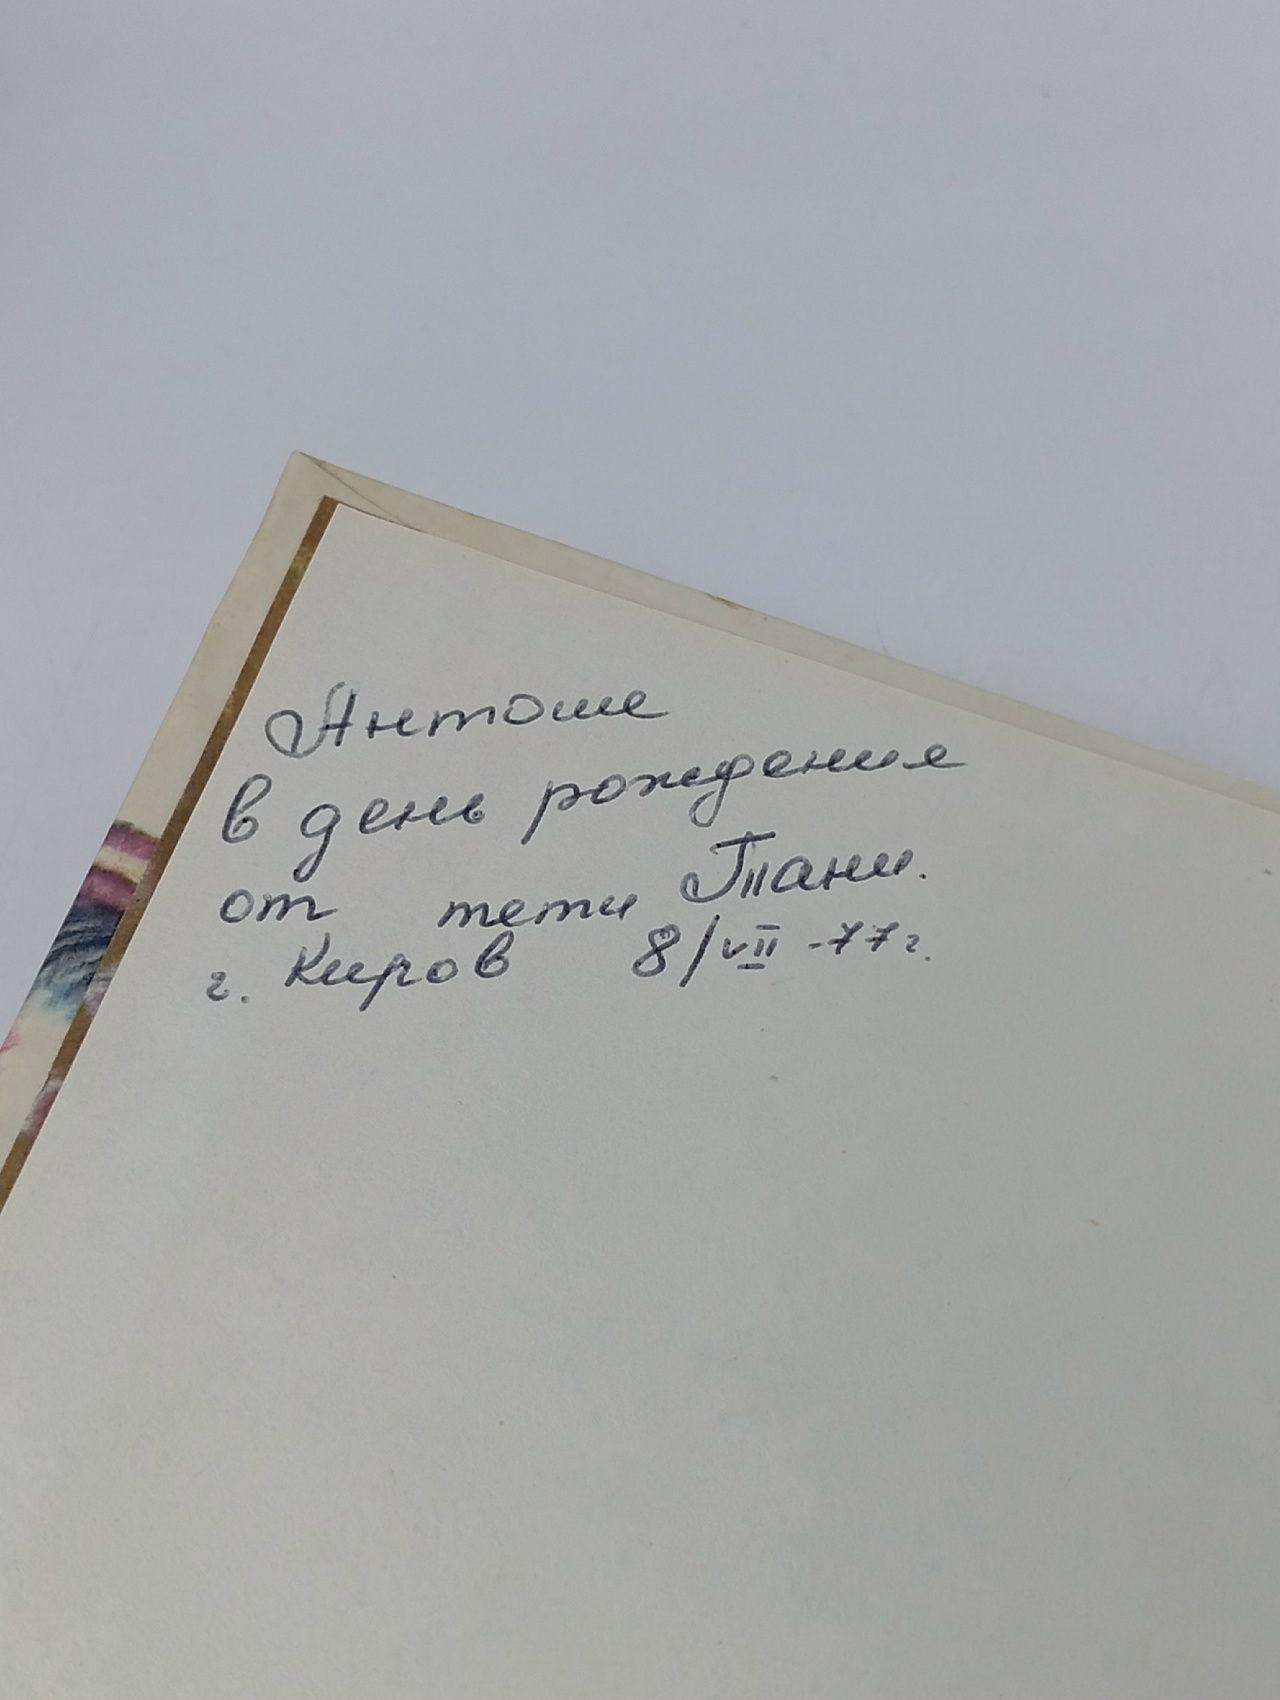 Антоше
в день рождения
от тети Тани.
г. Киров 8/VII -77г.